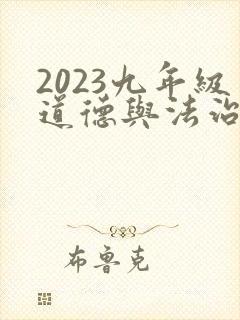 2023九年級
道德與法治
布魯克